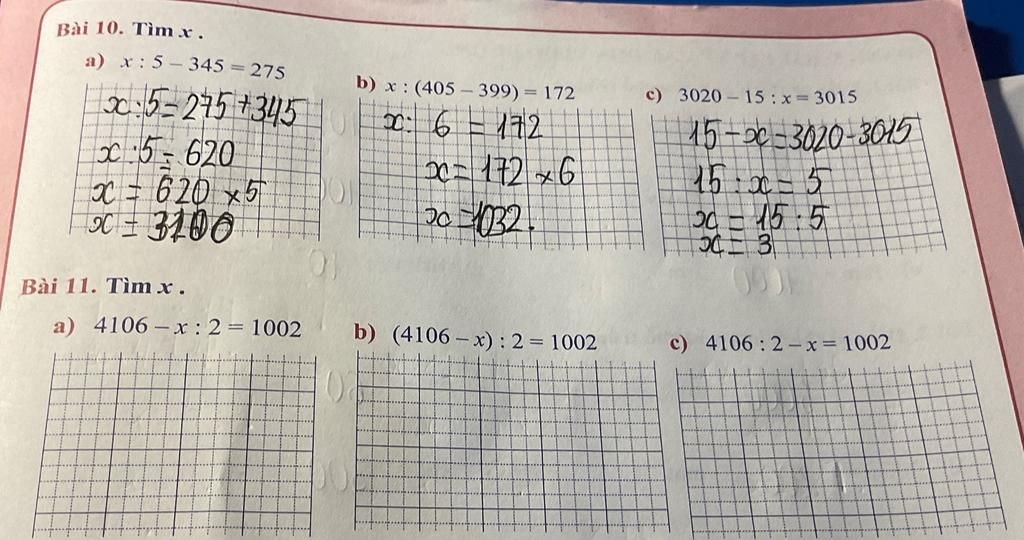 Bài 10. Tìm x .
a) x : 5 – 345 = 275
b) x : (405 – 399) = 172
c) 3020 – 15 : x = 3015
x : 5 = 275 + 345
x : 5 = 620
x = 620 x 5
x = 3100
x : 6 = 172
x = 172 x 6
x = 1032.
15 – x = 3020 – 3015
15 : x = 5
x = 15 : 5
x = 3
Bài 11. Tìm x .
a) 4106 – x : 2 = 1002
b) (4106 – x) : 2 = 1002
c) 4106 : 2 – x = 1002